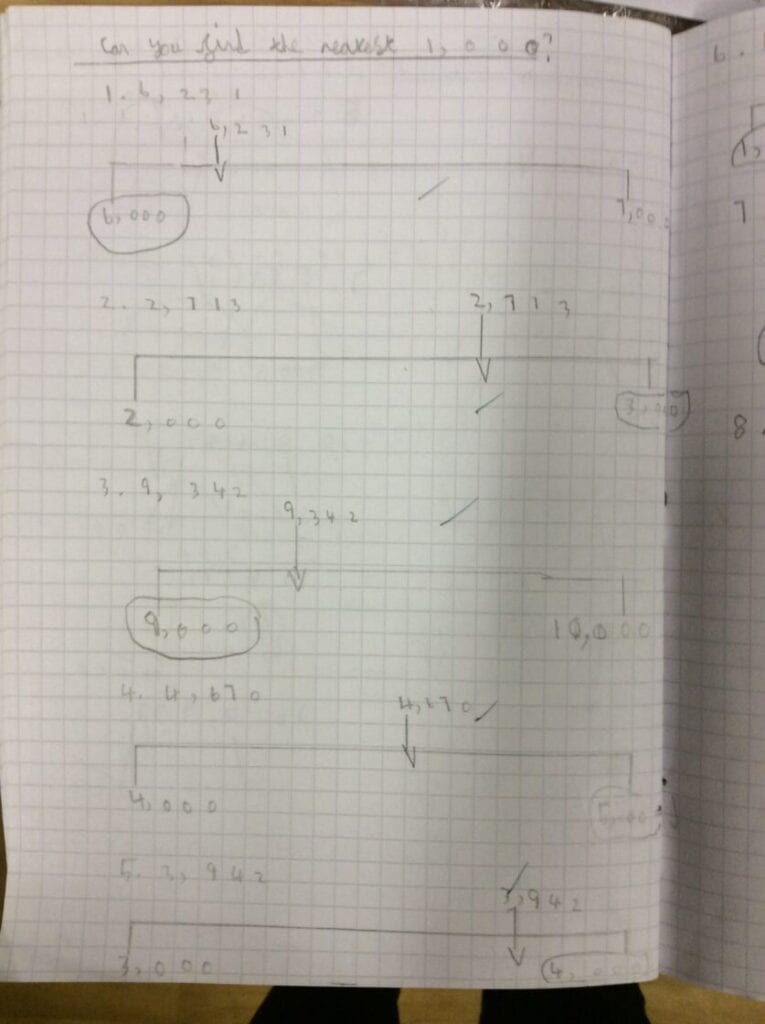 Can you find the nearest 1,000?
1. 6,231
6,231
6,000 7,000
2. 2,713 2,713
2,000 3,000
3. 9,342
9,342
9,000 10,000
4. 4,670 4,670
4,000 5,000
5. 3,942
3,942
3,000 4,000
6.
1,
7
8